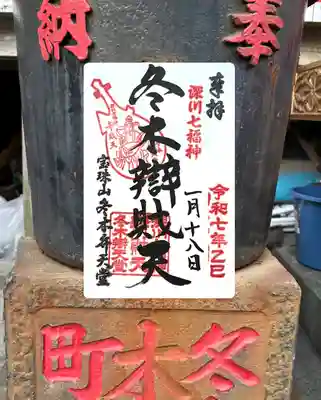 奉
納
奉拝
深川七福神
令和七年乙巳
一月十八日
冬木辯財天
宝珠山 冬木弁天堂
冬木
町